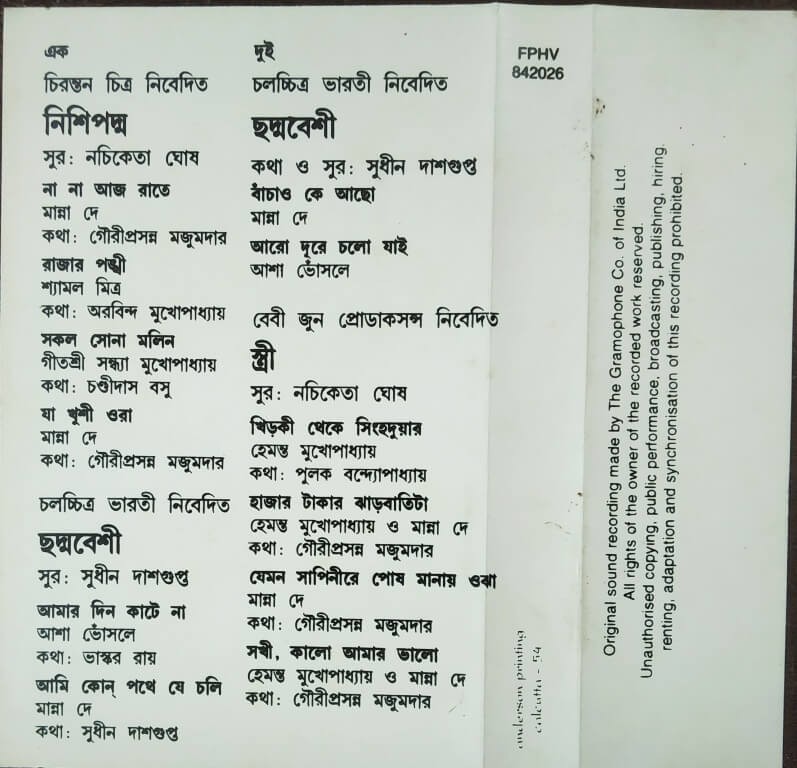 এক
চিরন্তন চিত্র নিবেদিত
নিশিপদ্ম
সুর: নচিকেতা ঘোষ
না না আজ রাতে
মান্না দে
কথা: গৌরীপ্রসন্ন মজুমদার
রাজার পঙ্খী
শ্যামল মিত্র
কথা: অরবিন্দ মুখোপাধ্যায়
সকল সোনা মলিন
গীতশ্রী সন্ধ্যা মুখোপাধ্যায়
কথা: চণ্ডীদাস বসু
যা খুশী ওরা
মান্না দে
কথা: গৌরীপ্রসন্ন মজুমদার
চলচ্চিত্র ভারতী নিবেদিত
ছদ্মবেশী
সুর: সুধীন দাশগুপ্ত
আমার দিন কাটে না
আশা ভোঁসলে
কথা: ভাস্কর রায়
আমি কোন্ পথে যে চলি
মান্না দে
কথা: সুধীন দাশগুপ্ত
দুই
চলচ্চিত্র ভারতী নিবেদিত
ছদ্মবেশী
কথা ও সুর: সুধীন দাশগুপ্ত
বাঁচাও কে আছো
মান্না দে
আরো দূরে চলো যাই
আশা ভোঁসলে
বেবী জুন প্রোডাকসন্স নিবেদিত
স্ত্রী
সুর: নচিকেতা ঘোষ
খিড়কী থেকে সিংহদুয়ার
হেমন্ত মুখোপাধ্যায়
কথা: পুলক বন্দ্যোপাধ্যায়
হাজার টাকার ঝাড়বাতিটা
হেমন্ত মুখোপাধ্যায় ও মান্না দে
কথা: গৌরীপ্রসন্ন মজুমদার
যেমন সাপিনীরে পোষ মানায় ওঝা
মান্না দে
কথা: গৌরীপ্রসন্ন মজুমদার
সখী, কালো আমার ভালো
হেমন্ত মুখোপাধ্যায় ও মান্না দে
কথা: গৌরীপ্রসন্ন মজুমদার
FPHV
842026
anderson printing
calcutta - 54
Original sound recording made by The Gramophone Co. of India Ltd.
All rights of the owner of the recorded work reserved.
Unauthorised copying, public performance, broadcasting, publishing, hiring,
renting, adaptation and synchronisation of this recording prohibited.